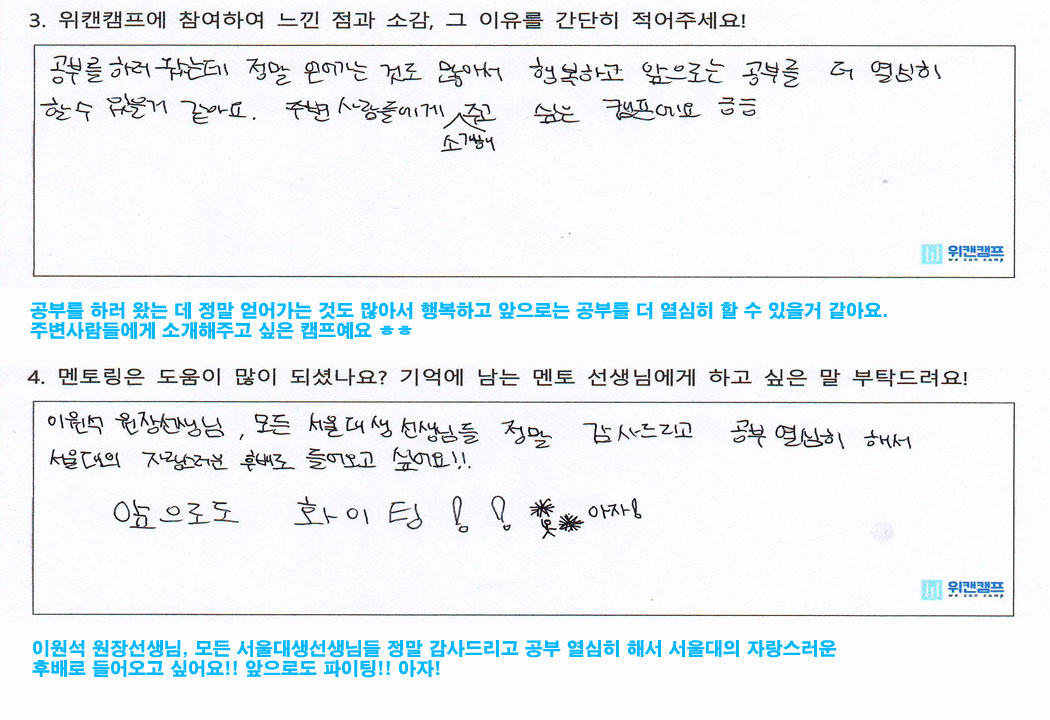 3. 위캔캠프에 참여하여 느낀 점과 소감, 그 이유를 간단히 적어주세요!
공부를 하러 왔는데 정말 얻어가는 것도 많아서 행복하고 앞으로는 공부를 더 열심히
할 수 있을거 같아요. 주변사람들에게 소개해주고 싶은 캠프에요 ㅎㅎ
위캔캠프
WE CAN CAMP
공부를 하러 왔는 데 정말 얻어가는 것도 많아서 행복하고 앞으로는 공부를 더 열심히 할 수 있을거 같아요.
주변사람들에게 소개해주고 싶은 캠프예요 ㅎㅎ
4. 멘토링은 도움이 많이 되셨나요? 기억에 남는 멘토 선생님에게 하고 싶은 말 부탁드려요!
이원석 원장선생님, 모든 서울대생선생님들 정말 감사드리고 공부 열심히 해서
서울대의 자랑스러운 후배로 들어오고 싶어요!!.
앞으로도 화이팅!! 아자!
위캔캠프
WE CAN CAMP
이원석 원장선생님, 모든 서울대생선생님들 정말 감사드리고 공부 열심히 해서 서울대의 자랑스러운
후배로 들어오고 싶어요!! 앞으로도 파이팅!! 아자!